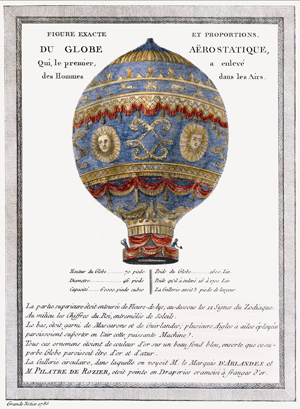 FIGURE EXACTE ET PROPORTIONS,
DU GLOBE AËROSTATIQUE,
Qui, le premier, a enlevé
des Hommes dans les Airs.
Hauteur du Globe 70 pieds
Diametre 46 pieds
Capacité 60000 pieds cubes
Poids du Globe 1600 Liv
Poids qu'il a enlevé 16 à 1700 Liv
La Gallerie avoit 3 pieds de largeur
La partie superieure étoit entourée de Fleurs-de-lys, au-dessous les 12 Signes du Zodiaque.
Au milieu les Chiffres du Roi, entremêlés de Soleils.
Le bas, étoit garni de Mascarons et de Guirlandes; plusieurs Aigles à ailes éployées
paroissoient supporter en l'air cette puissante Machine.
Tous ces ornemens étoient de couleur d'or sur un beau fond bleu, ensorte que ce su-
perbe Globe paroissoit être d'or et d'azur.
La Gallerie circulaire, dans laquelle on voyoit M. le Marquis D'ARLANDES et
M. PILATRE DE ROZIER, étoit peinte en Draperies cramoisi à franges d'or.
1786